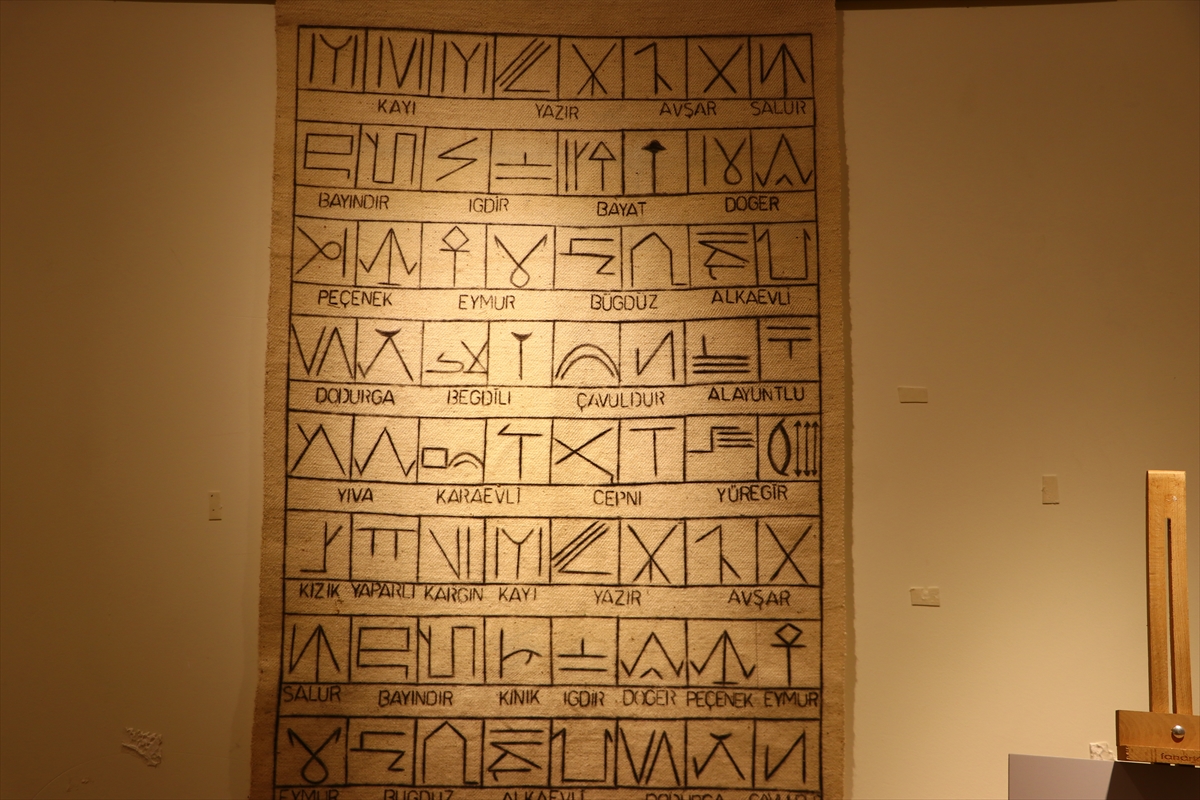 KAYI YAZIR AVŞAR SALUR
BAYINDIR IGDİR BAYAT DOGER
PEÇENEK EYMUR BÜGDÜZ ALKAEVLİ
DODURGA BEGDİLİ ÇAVULDUR ALAYUNTLU
YIVA KARAEVLİ CEPNI YÜREGİR
KIZIK YAPARLI KARGIN KAYI YAZIR AVŞAR
SALUR BAYINDIR KINIK IGDİR DOGER PEÇENEK EYMUR
EYMUR BUGDUZ ALKAEVLİ DODURGA